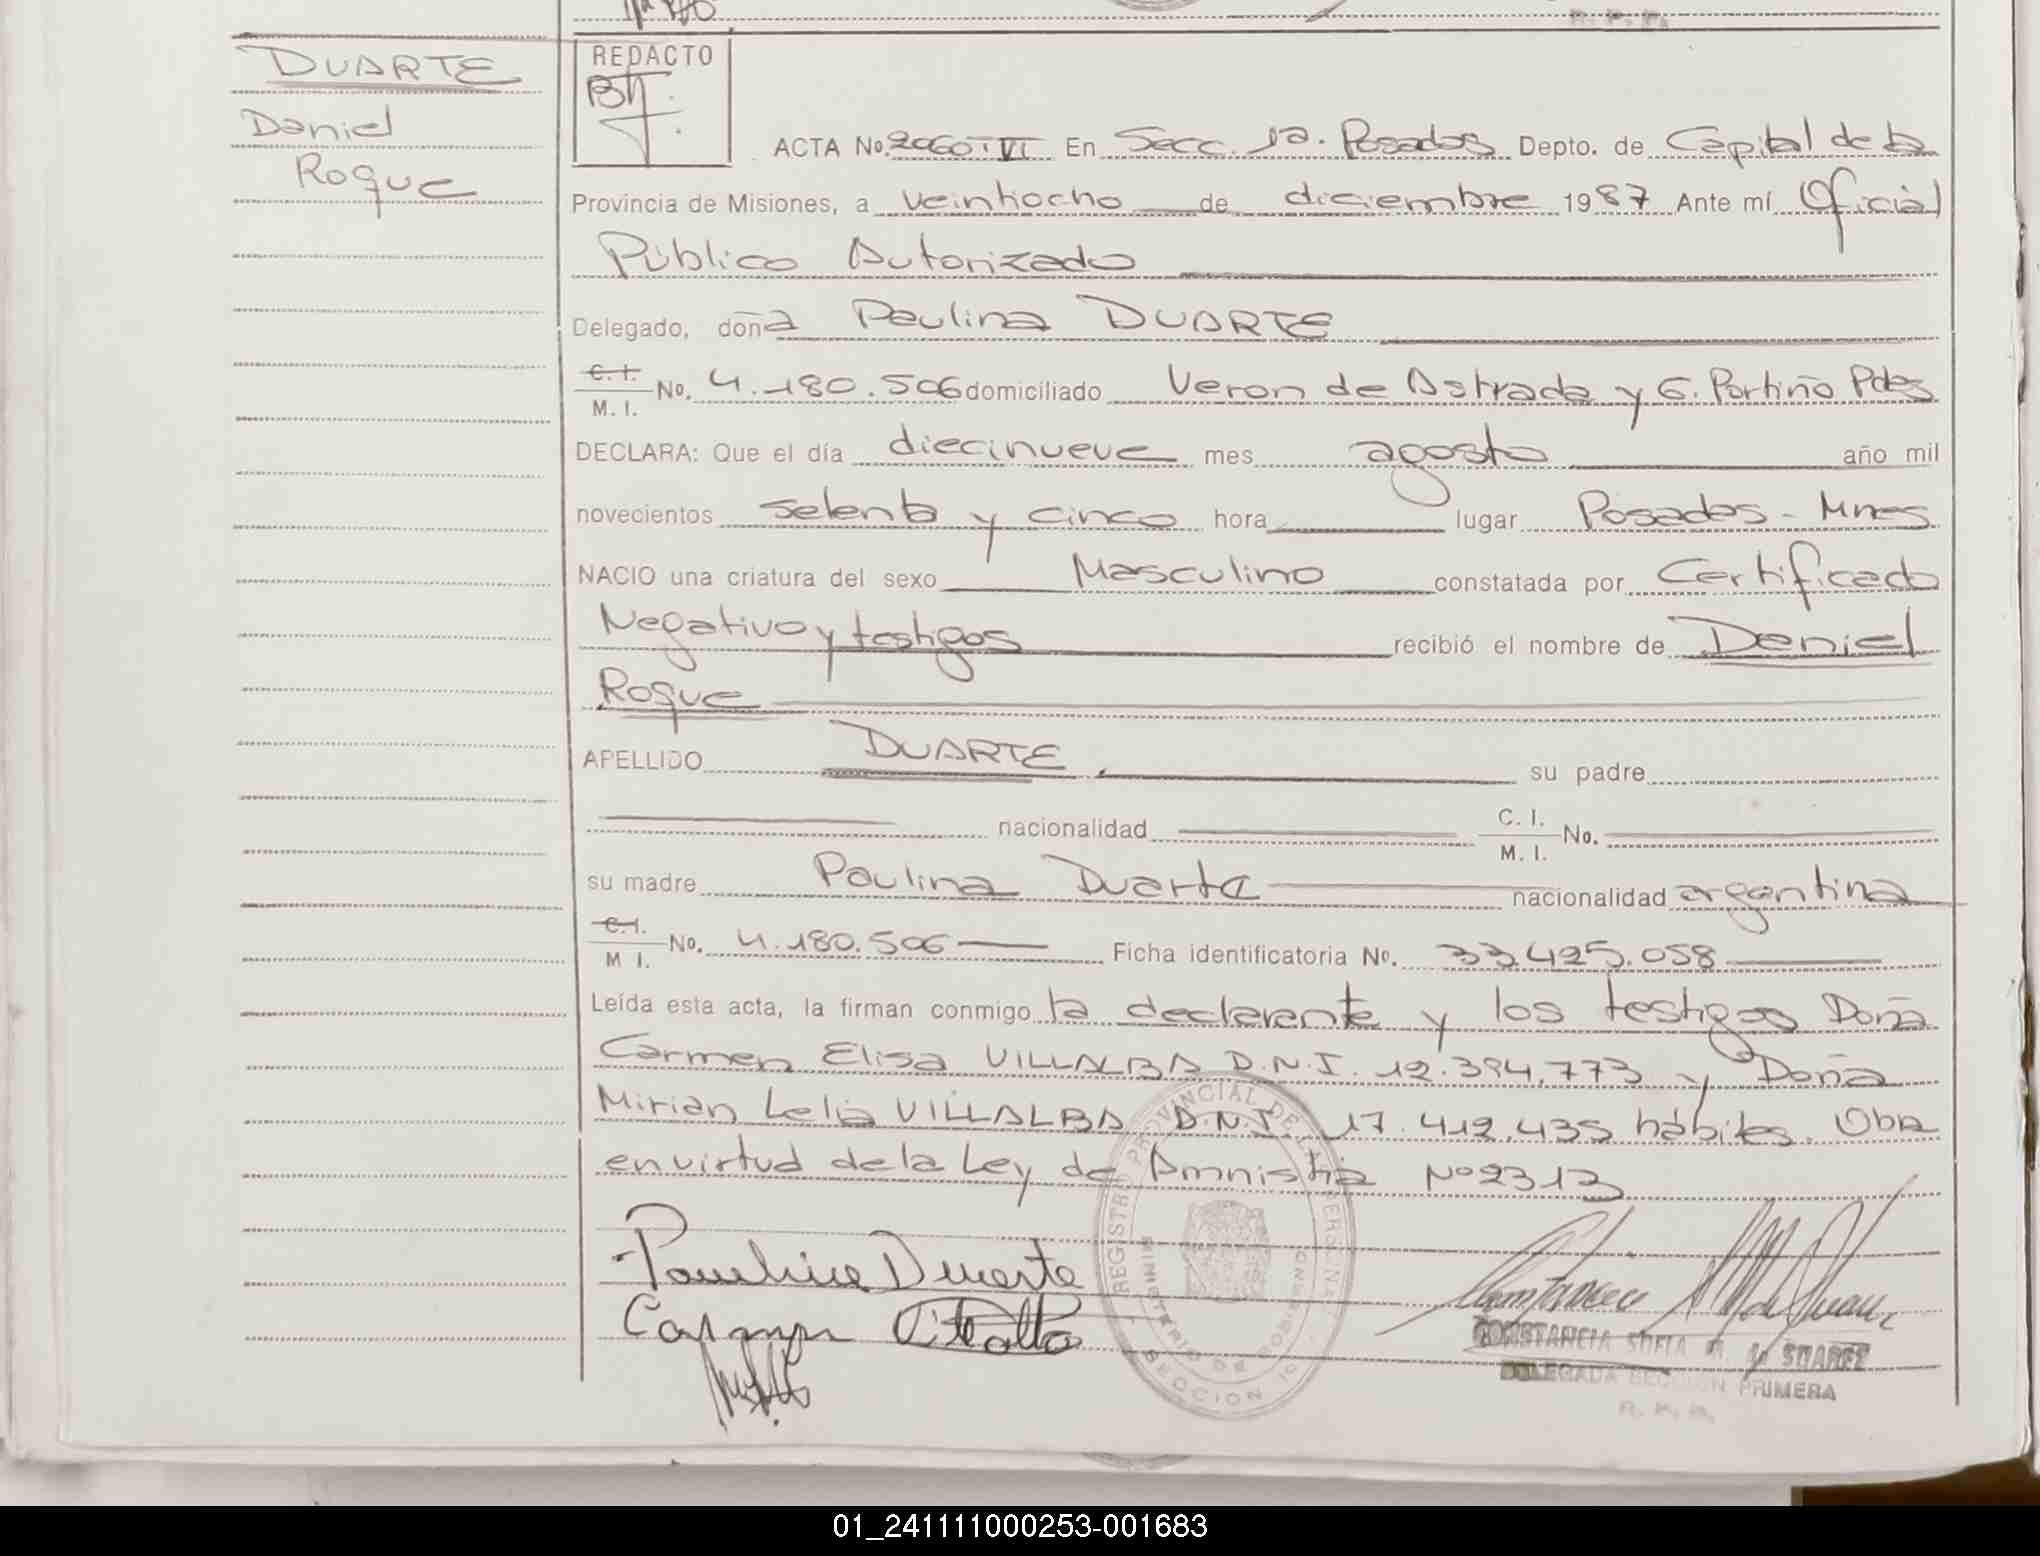 DUARTE
Daniel
Roque
REDACTO
ACTA No. 2060-VI En Secc. 1a. Posadas Depto. de Capital de la
Provincia de Misiones, a veintiocho de diciembre 1987 Ante mí Oficial
Público Autorizado
Delegado, doña Paulina DUARTE
C. I. / M. I. No. 4.180.506 domiciliado Veron de Astrada y G. Portiño Pdas
DECLARA: Que el día diecinueve mes agosto año mil
novecientos setenta y cinco hora lugar Posadas - Mnes
NACIO una criatura del sexo Masculino constatada por Certificado
Negativo y testigos recibió el nombre de Daniel
Roque
APELLIDO DUARTE su padre
nacionalidad C. I. / M. I. No.
su madre Paulina Duarte nacionalidad argentina
C. I. / M I. No. 4.180.506 Ficha identificatoria No. 33.425.058
Leída esta acta, la firman conmigo la declarante y los testigos Doña
Carmen Elisa VILLALBA D.N.I. 12.394.773 y Doña
Mirian Lelia VILLALBA D.N.I. 17.412.435 hábiles. Obra
en virtud de la Ley de Amnistia Nº 2313
Paulina Duarte
REGISTRO PROVINCIAL DE LAS PERSONAS
MINISTERIO DE GOBIERNO
SECCION 1a
CONSTANCIA SOFIA M. de SUAREZ
DELEGADA SECCION PRIMERA
R. P. P.
01_241111000253-001683